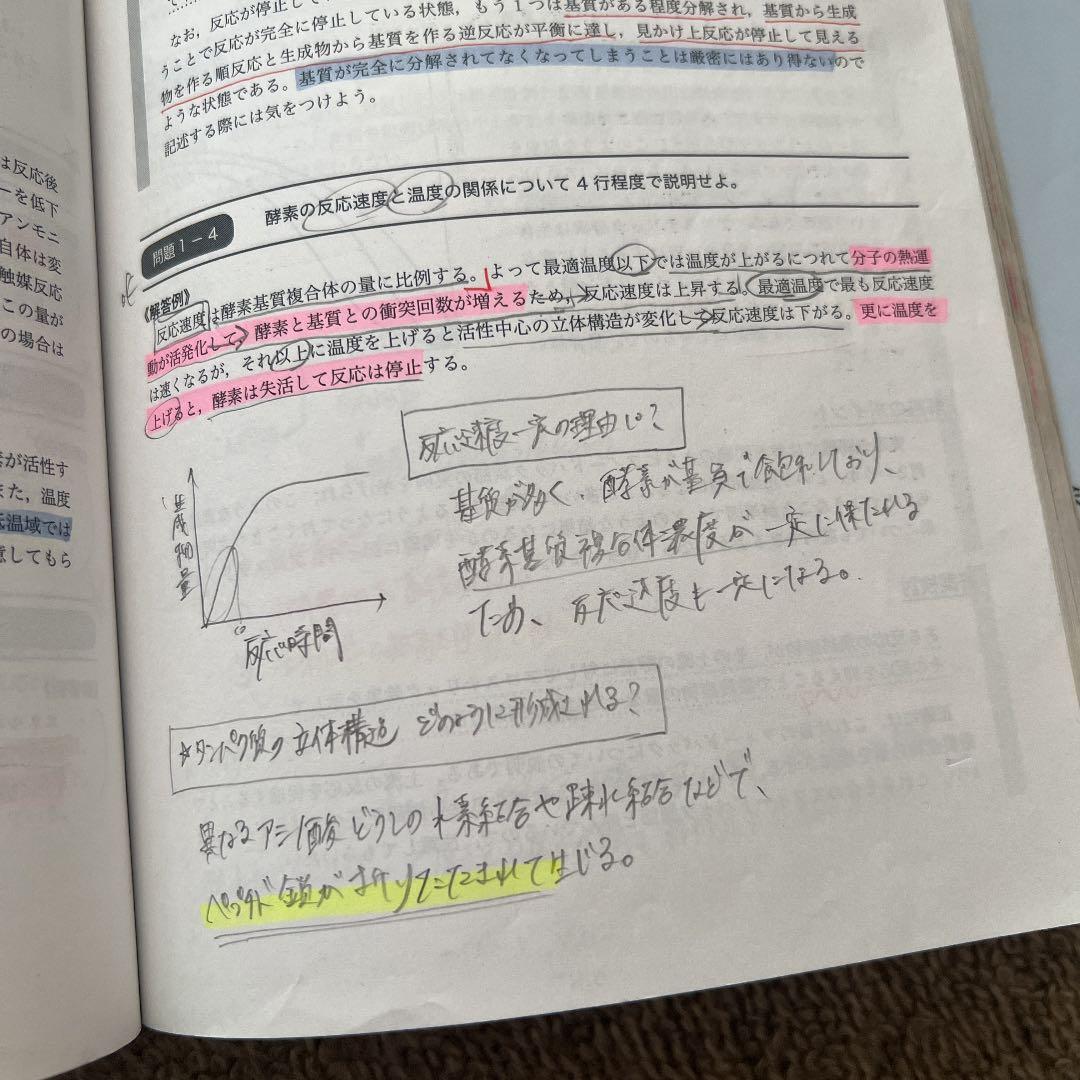 なお，反応が停止して
うことで反応が完全に停止している状態，もう1つは基質がある程度分解され，基質から生成
物を作る順反応と生成物から基質を作る逆反応が平衡に達し，見かけ上反応が停止して見える
ような状態である。基質が完全に分解されてなくなってしまうことは厳密にはあり得ないので
記述する際には気をつけよう。
問題1－4
酵素の反応速度と温度の関係について4行程度で説明せよ。
《解答例》
反応速度は酵素基質複合体の量に比例する。よって最適温度以下では温度が上がるにつれて分子の熱運
動が活発化して，酵素と基質との衝突回数が増えるため，反応速度は上昇する。最適温度で最も反応速度
は速くなるが，それ以上に温度を上げると活性中心の立体構造が変化して反応速度は下がる。更に温度を
上げると，酵素は失活して反応は停止する。
反応速度一定の理由は?
基質が多く、酵素が基質で飽和しており、
酵素基質複合体濃度が一定に保たれる
ため、反応速度も一定になる。
生成物量
反応時間
☆タンパク質の立体構造どのように形成される?
異なるアミノ酸どうしの水素結合や疎水結合などで、
ペプチド鎖が折りたたまれて生じる。
は反応後
ーを低下
アンモニ
自体は変
触媒反応
この量が
の場合は
素が活性す
また，温度
低温域では
意してもら